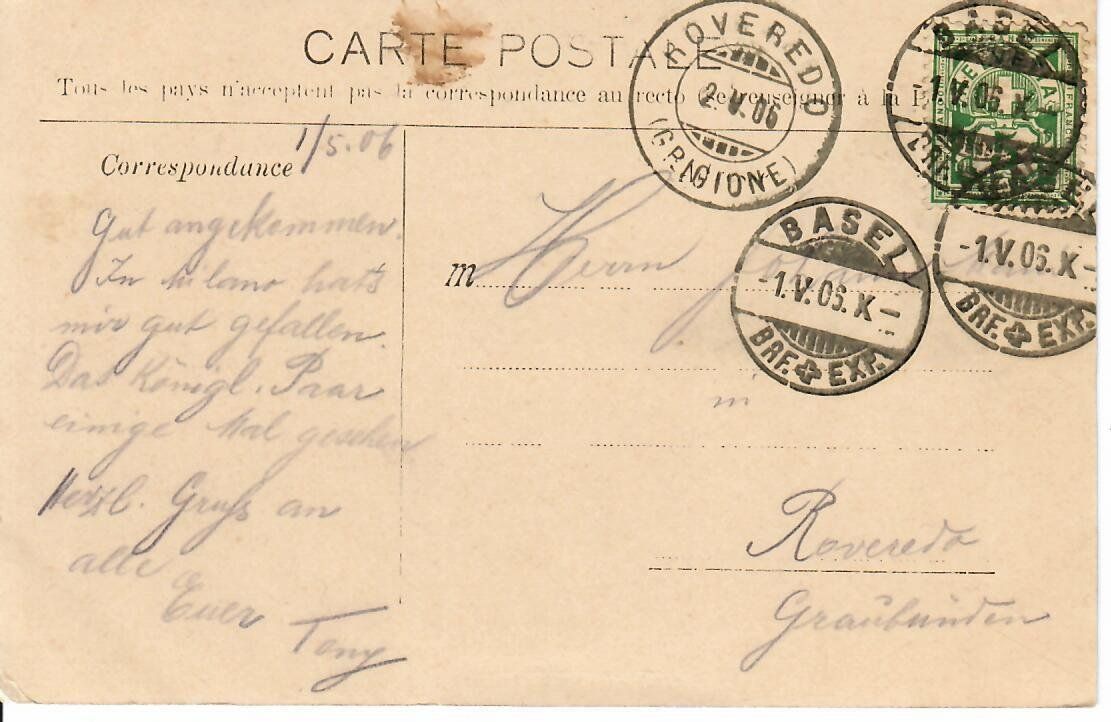 CARTE POSTALE
Tous les pays n'acceptent pas la correspondance au recto Se renseigner à la
1/5.06
Correspondance
Gut angekommen.
In Milano hat's
mir gut gefallen.
Das Königl. Paar
einige Mal gesehen
Herzl. Gruss an
alle
Euer
Tony
M Herrn
in
Roveredo
Graubünden
ROVEREDO
2.V.06
(GRIGIONE)
BASEL
-1.V.06.X-
BRF. EXP.
BASEL
-1.V.06.X-
BRF. EXP.
-1.V.06.X-
BRF. EXP.
FRANCO